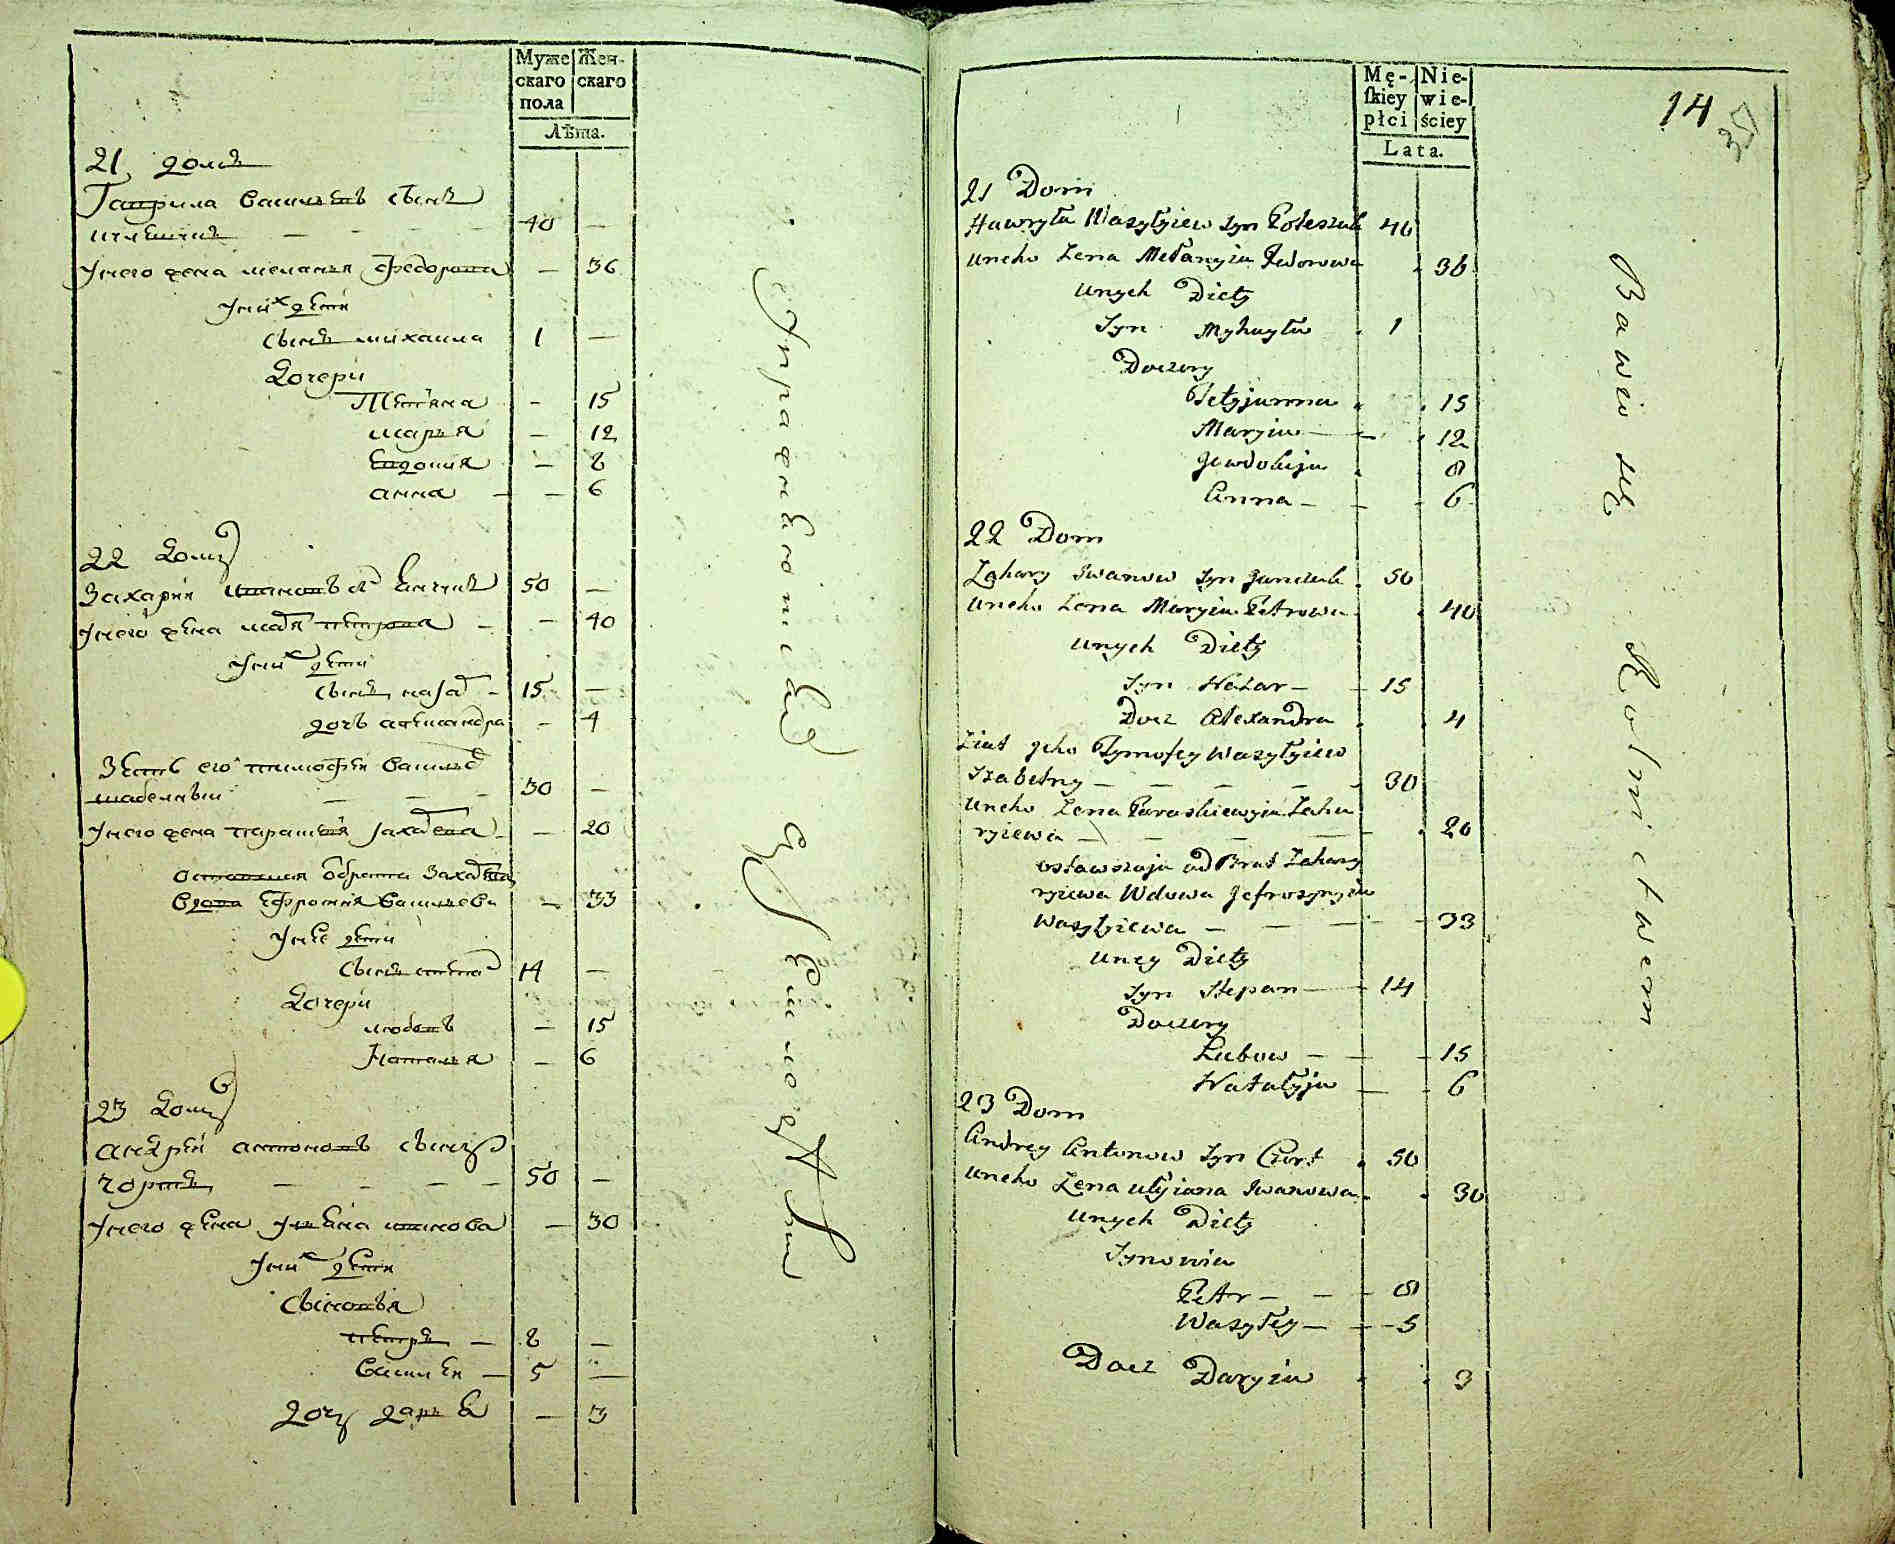 Муже
скаго
пола
Жен-
скаго
Лѣта.
21 домъ
Гаврила Васильевъ сынъ
40 —
Унего жена меланья Федорова — 36
Уних дети
сынъ михаила 1 —
Дочери
Тетяна — 15
марья — 12
Евдокия — 8
анна — — 6
22 Домъ
Захарий ивановъ 50 —
Унего жена петрова — — 40
Уних дети
сынъ назар - 15 —
дочь александра — 4
Зять его тимофей Василье
шабелный — — - 30 —
Унего жена параския захарева — 20
оставшая от брата
вдова Ефросиня Василева — 33
Унее дети
сынъ степа 14 —
Дочери
любовь — 15
Наталья — 6
23 Домъ
андрей антоновъ сынъ
чортъ — - - — 50 —
Унего жена Уляна иванова — 30
Уних дети
Сыновья
петръ — 8 —
Василей — 5 —
дочь даря — 3
Mę-
skiey
płci
Nie-
wie-
ściey
Lata.
14
37
21 Dom
Hawryła Wasyłyiew Syn Poleszuk 40
uneho Żena Mełanyia Fedorowa 36
unych Diety
Syn Myhayło 1
Doczery
Tetyjanna 15
Maryia — 12
Jewdokija 8
Anna — 6
22 Dom
Zahary Iwanow Syn 50
uneho Żena Maryia Petrowa 40
unych Diety
Syn Nazar — 15
Docz Alexandra 4
Ziat jeho Tymofey Wasyłyiew
Szabelny — — — — 30
uneho Żena Paraskiewyia Zaha
ryiewa — — — — 20
ostawszaja od Brat Zahary
ryiewa Wdowa Jefrosynyia
Wasyłyiewa — — — 33
uney Diety
Syn Stepan — 14
Doczery
Lubow — — 15
Natałyja — 6
23 Dom
Andrey Antonow Syn Czort 50
uneho Żena Ulyiana Iwanowa 30
unych Diety
Synowia
Petr — — 8
Wasyłey — — 5
Docz Daryia 3
Bawio się Rolnictwem